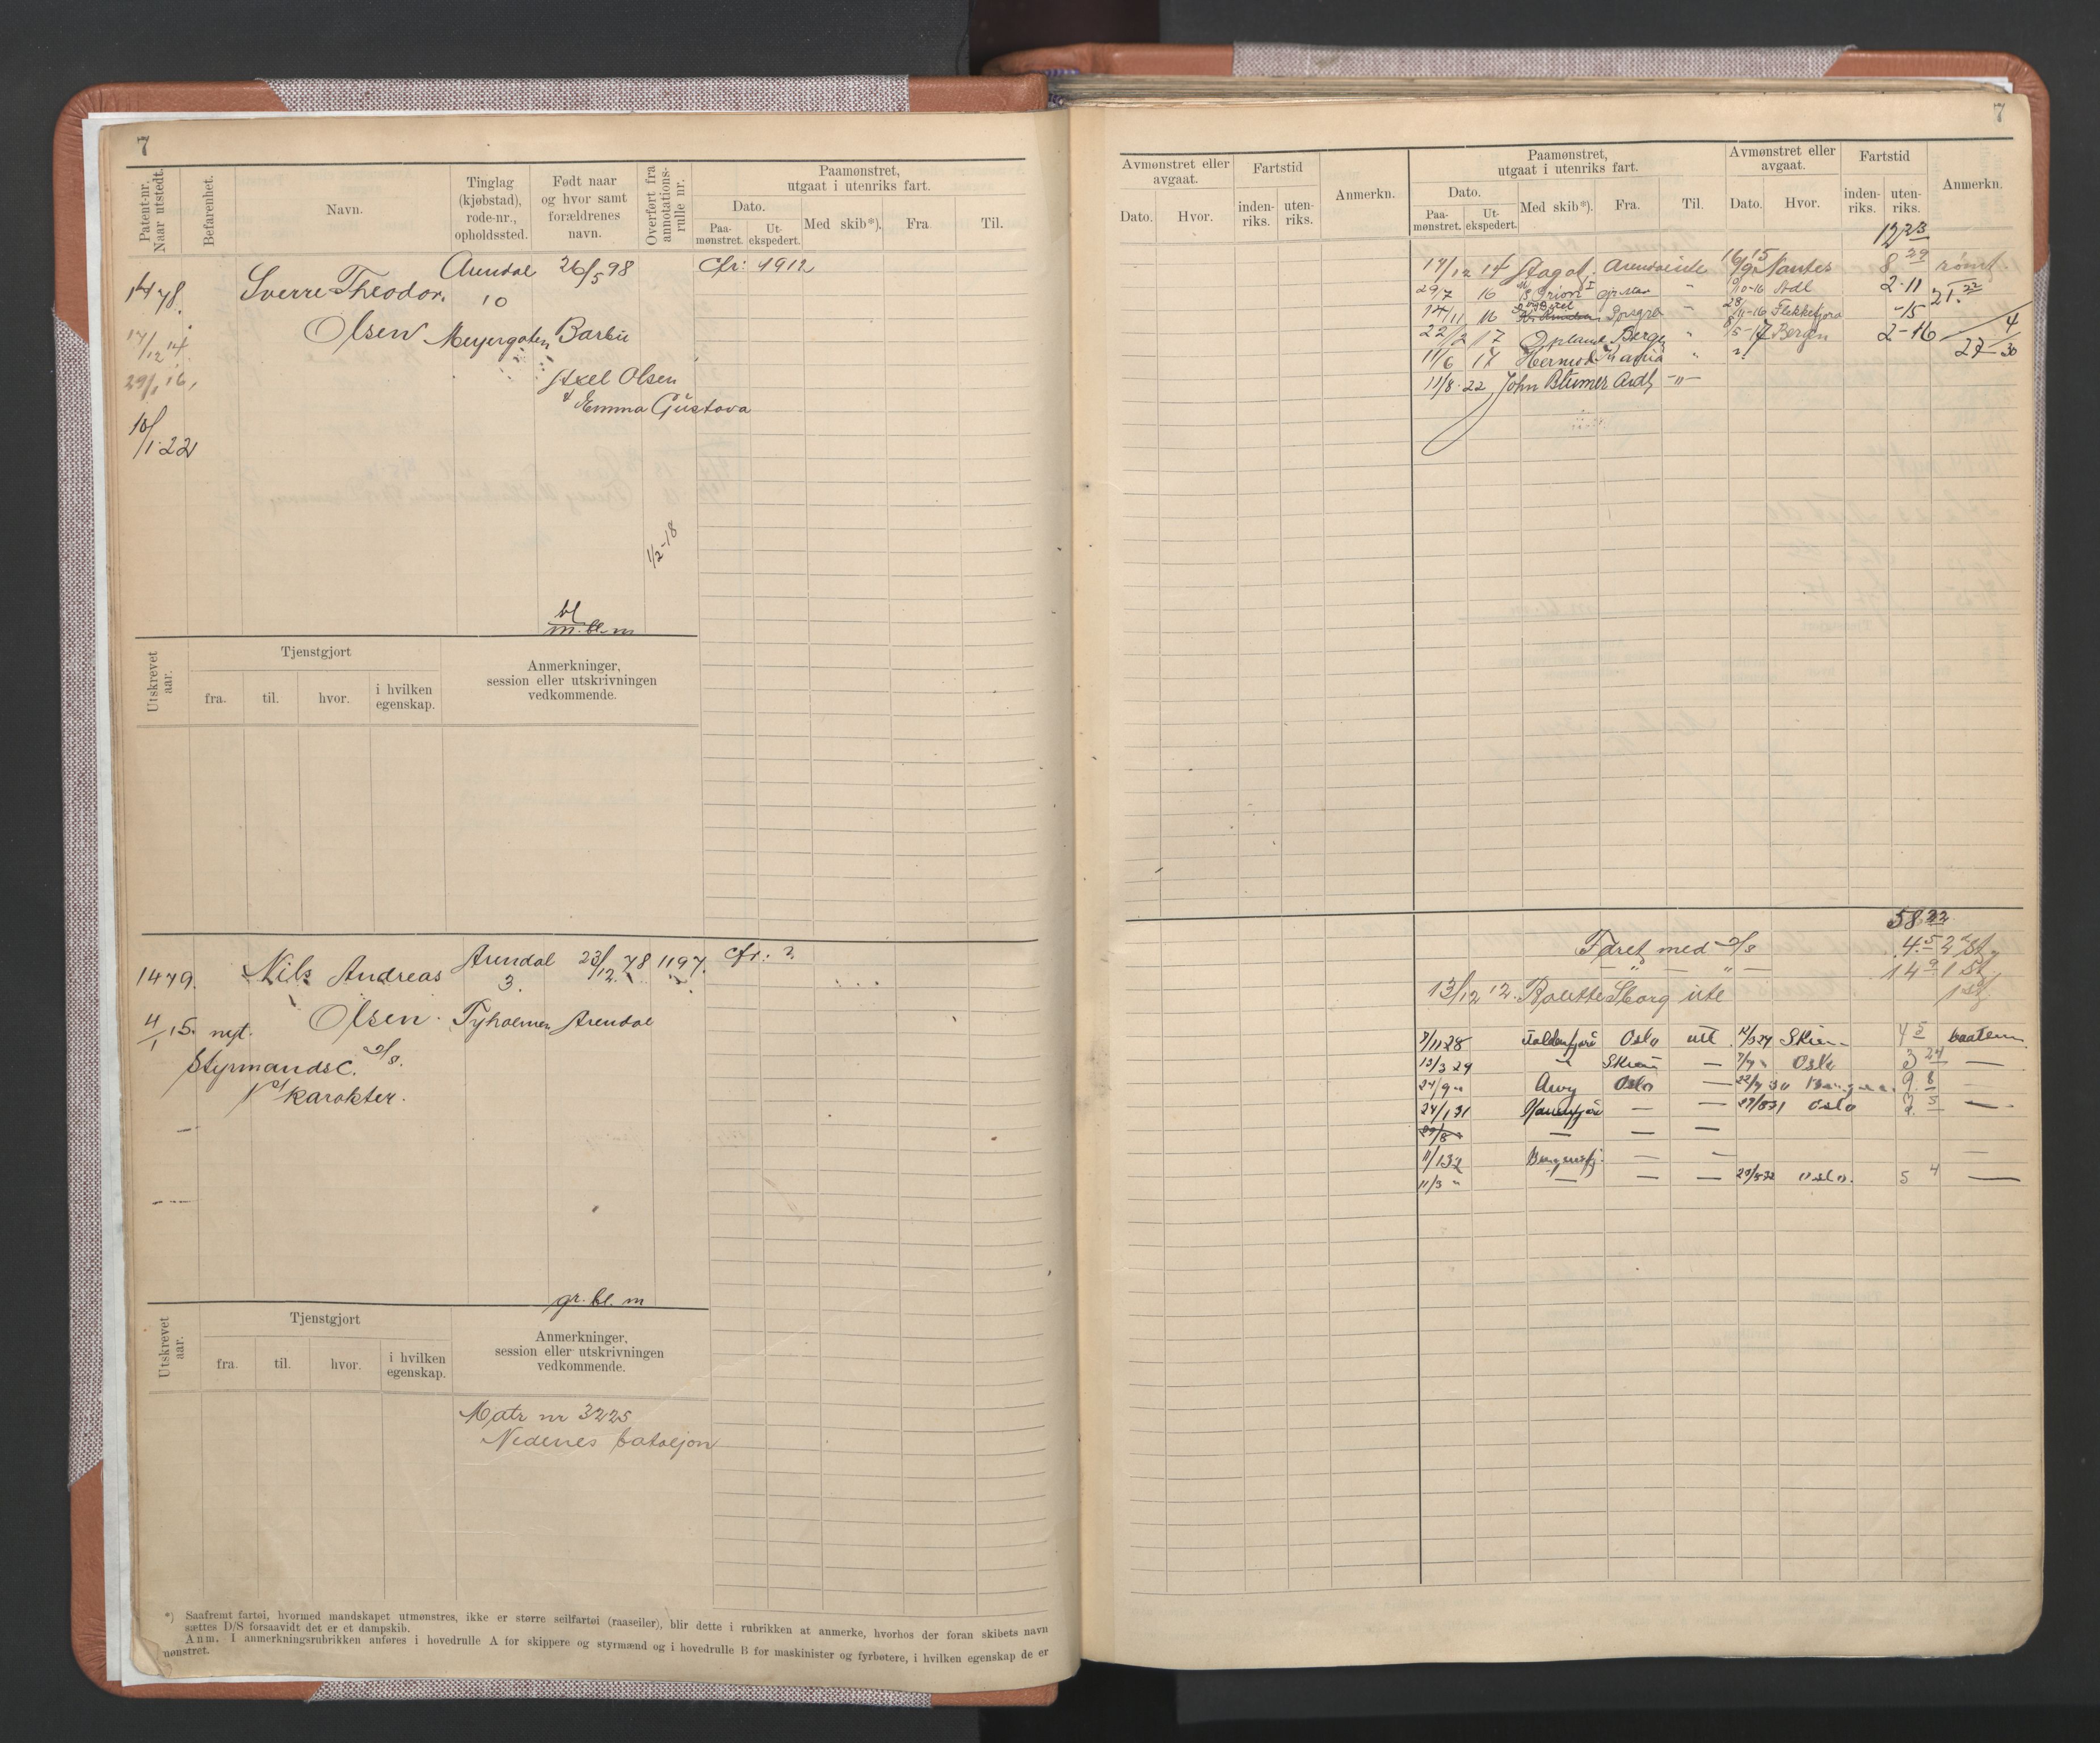 7
Patent-nr. Naar utstedt.
Befarenhet.
Navn.
Tinglag (kjøbstad), rode-nr., opholdssted.
Født naar og hvor samt forældrenes navn.
Overført fra annotations-rulle nr.
Paamønstret, utgaat i utenriks fart.
Dato.
Paa-mønstret.
Ut-ekspedert.
Med skib*).
Fra
Til.
1478.
Sverre Theodor.
Arendal
26/5 98
Cfr: 1912
10
Olsen
Meyergaten
Barbu
17/12 14.
Axel Olsen
29/7 16,
& Emma Gustava
10/1 22
1/2-18
bl
m. bl. m
Utskrevet aar.
Tjenstgjort
fra.
til.
hvor.
i hvilken egenskap.
Anmerkninger, session eller utskrivningen vedkommende.
1479.
Nils Andreas
Arendal
23/12 78
1197.
Cfr: 2
3.
Olsen.
Tyholmen
Arendal
4/1 15. nyt.
Styrmandsc.
karakter.
gr. bl. m
Utskrevet aar.
Tjenstgjort
fra.
til.
hvor.
i hvilken egenskap.
Anmerkninger, session eller utskrivningen vedkommende.
Matr nr 3225
Nedenes bataljon
*) Saafremt fartøi, hvormed mandskapet utmønstres, ikke er større seilfartøi (raaseiler), blir dette i rubrikken at anmerke, hvorhos der foran skibets navn
sættes D/S forsaavidt det er et dampskib.
Anm. I anmerkningsrubrikken anføres i hovedrulle A for skippere og styrmænd og i hovedrulle B for maskinister og fyrbøtere, i hvilken egenskap de er
mønstret.
7
Avmønstret eller avgaat.
Fartstid
Anmerkn.
Dato.
Hvor.
inden-riks.
uten-riks.
Paamønstret, utgaat i utenriks fart.
Avmønstret eller avgaat.
Fartstid
Anmerkn.
Dato.
Paa-mønstret.
Ut-ekspedert.
Med skib*).
Fra.
Til.
Dato.
Hvor.
inden-riks.
uten-riks.
12 23
17/12 14 Nantes 8 29 rømt
29/7 16 Adl 2-11 21. 22
14/11 16 Porsgr 28/11-16 Flekkefjord -15
22/2 17 Opland Berge " 5-17 Bergen 2-16 4
11/6 17 Hermod " 27 30
11/8 22 John Blumer Adl -"-
58 22
Faret med
4. 5 2 St,
14 9 1 St
13/12 12. ute
1 St
7/11 28 Oslo ut Skien 4 5 baatsm.
13/3 29 " Skien — Oslo 3 24 —
24/9 " Oslo — 9. 8 —
24/1 31 — — Oslo 7. 5 —
— — —
11/1 32 Bergensfj. — — —
11/3 " — — — Oslo. 5 4 —